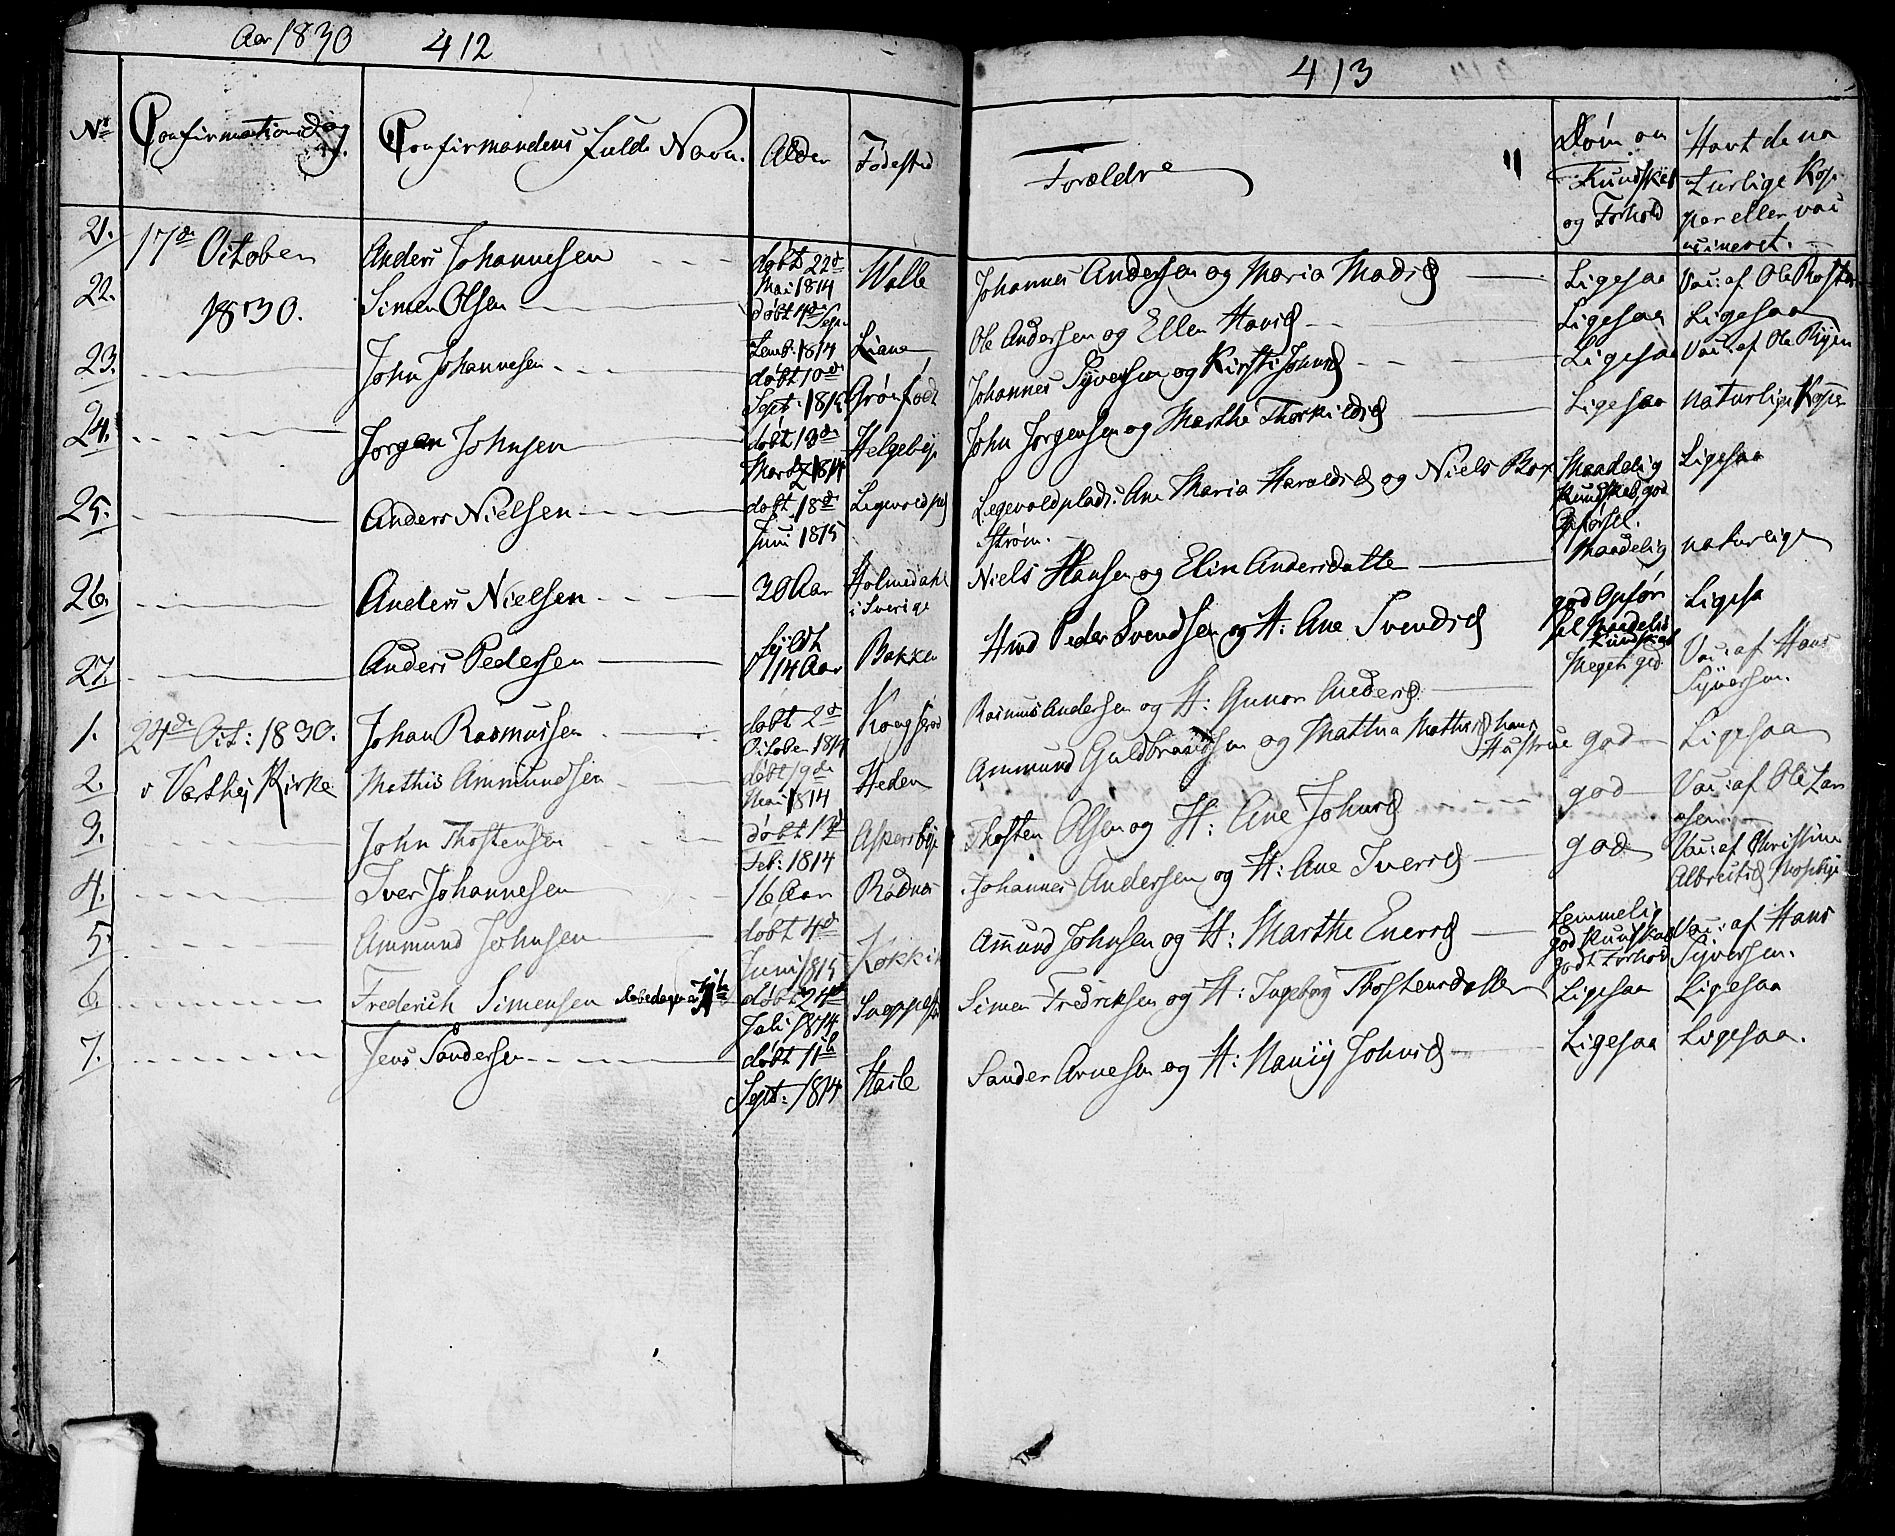 Aar 1830
412
No
Confirmationsdag
Confirmandens fulde Navn.
Alder
Fødested
21.
17de October
Anders Johannesen
døbt 22d
Mai 1814
Walle
22.
1830.
Simen Olsen
døbt 4de Sep
temb: 1814
Liane
23.
John Johannesen
døbt 10de
Sept: 1815
Grønfødt
24.
Jørgen Johnsen
døbt 13de
Mardz 1814
Helgebÿe
25.
Anders Nielsen
døbt 18de
Juni 1815
Ligevoldpl
26.
Anders Nielsen
30 Aar
Holmedahl
i Sverige
27.
Anders Pedersen
14 Aar
Bakken
1.
24de Oct: 1830.
Johan Rasmussen
døbt 2d
October 1814
2.
Mathis Ammundsen
døbt 19de
Mai 1814
Heden
v Varthej Kirke
3.
John Thostensen
døbt 13d
Feb: 1814
Aspersbÿe
4.
Iver Johannesen
16 Aar
Rødnes
5.
Ammund Johnsen
døbt 4d
Juni 1815
6.
Frederich Simensen
døbt 24de
Juli 1814
7.
Jens Sandersen
døbt 11te
Sept: 1814
Hasle
413
Forældre
Døm om
Kundskab
og Forhold
Havt de na
turlige Kop
per eller vac
cineret.
Johannes Andersen og Maria Madsd
Ligesaa
Vac: af Ole
Ole Andersen og Ellen Havisd
Ligesaa
Ligesaa
Johannes Syversen og Kirsti Johnsd
Ligesaa
Vac: af Ole Ryen
John Jørgensen og Marthe Thorkildsd
Ligesaa
naturlige Kopper
Legevoldplads: Ane Maria Haraldsd og Niels Bor
strøm.
Maadelig
Kundskab, god
Opførsel.
Ligesaa
Niels Hansen og Elin Andersdatte
Maadelig
god Opfør
sel
naturlige
Hmd Peder Svendsen og H: Ane Svendsd
Maadelig
Kundskab
Ligesa
Rasmus Andersen og H: Gunor Andersd
Meget god
Vac: af Hans
Syversen.
Ammund Guldbrandsen og Mathea Mathisd hans
Hustrue
god
Ligesaa
Thosten Olsen og H: Ane Johnsd
god
Vac: af Ole Lar
sen
Johannes Andersen og H: Ane Iversd
god
Vac: af Christine
Albretsd
Amund Johnsen og H: Marthe Enersd
Temmelig
god Kundskab
godt Forhold
Vac: af Hans
Syversen.
Simen Fredriksen og H: Ingeborg Thostensdatter
Ligesaa
Ligesaa
Sander Arnesen og H: Johnsd
Ligesaa
Ligesaa.